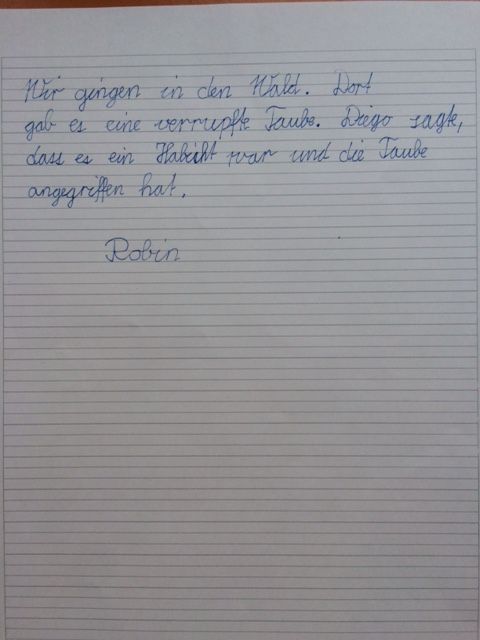 Wir gingen in den Wald. Dort
gab es eine verrupfte Taube. Diego sagte,
dass es ein Habicht war und die Taube
angegriffen hat.
Robin